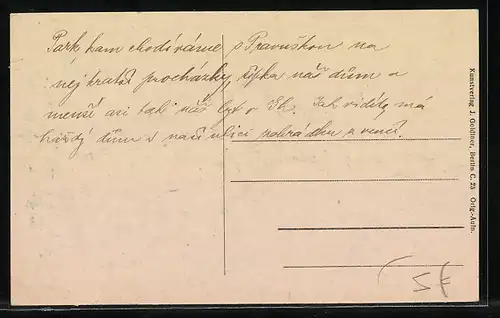 Park, kam chodíváme s Pravuškou na
nejkratší procházky, týka náš dům a
menší asi také náš byt v Jak vidíte, má
každý dům v naší ulici zahrádku a
Kunstverlag J. Goldiner, Berlin C. 25 Orig.-Aufn.